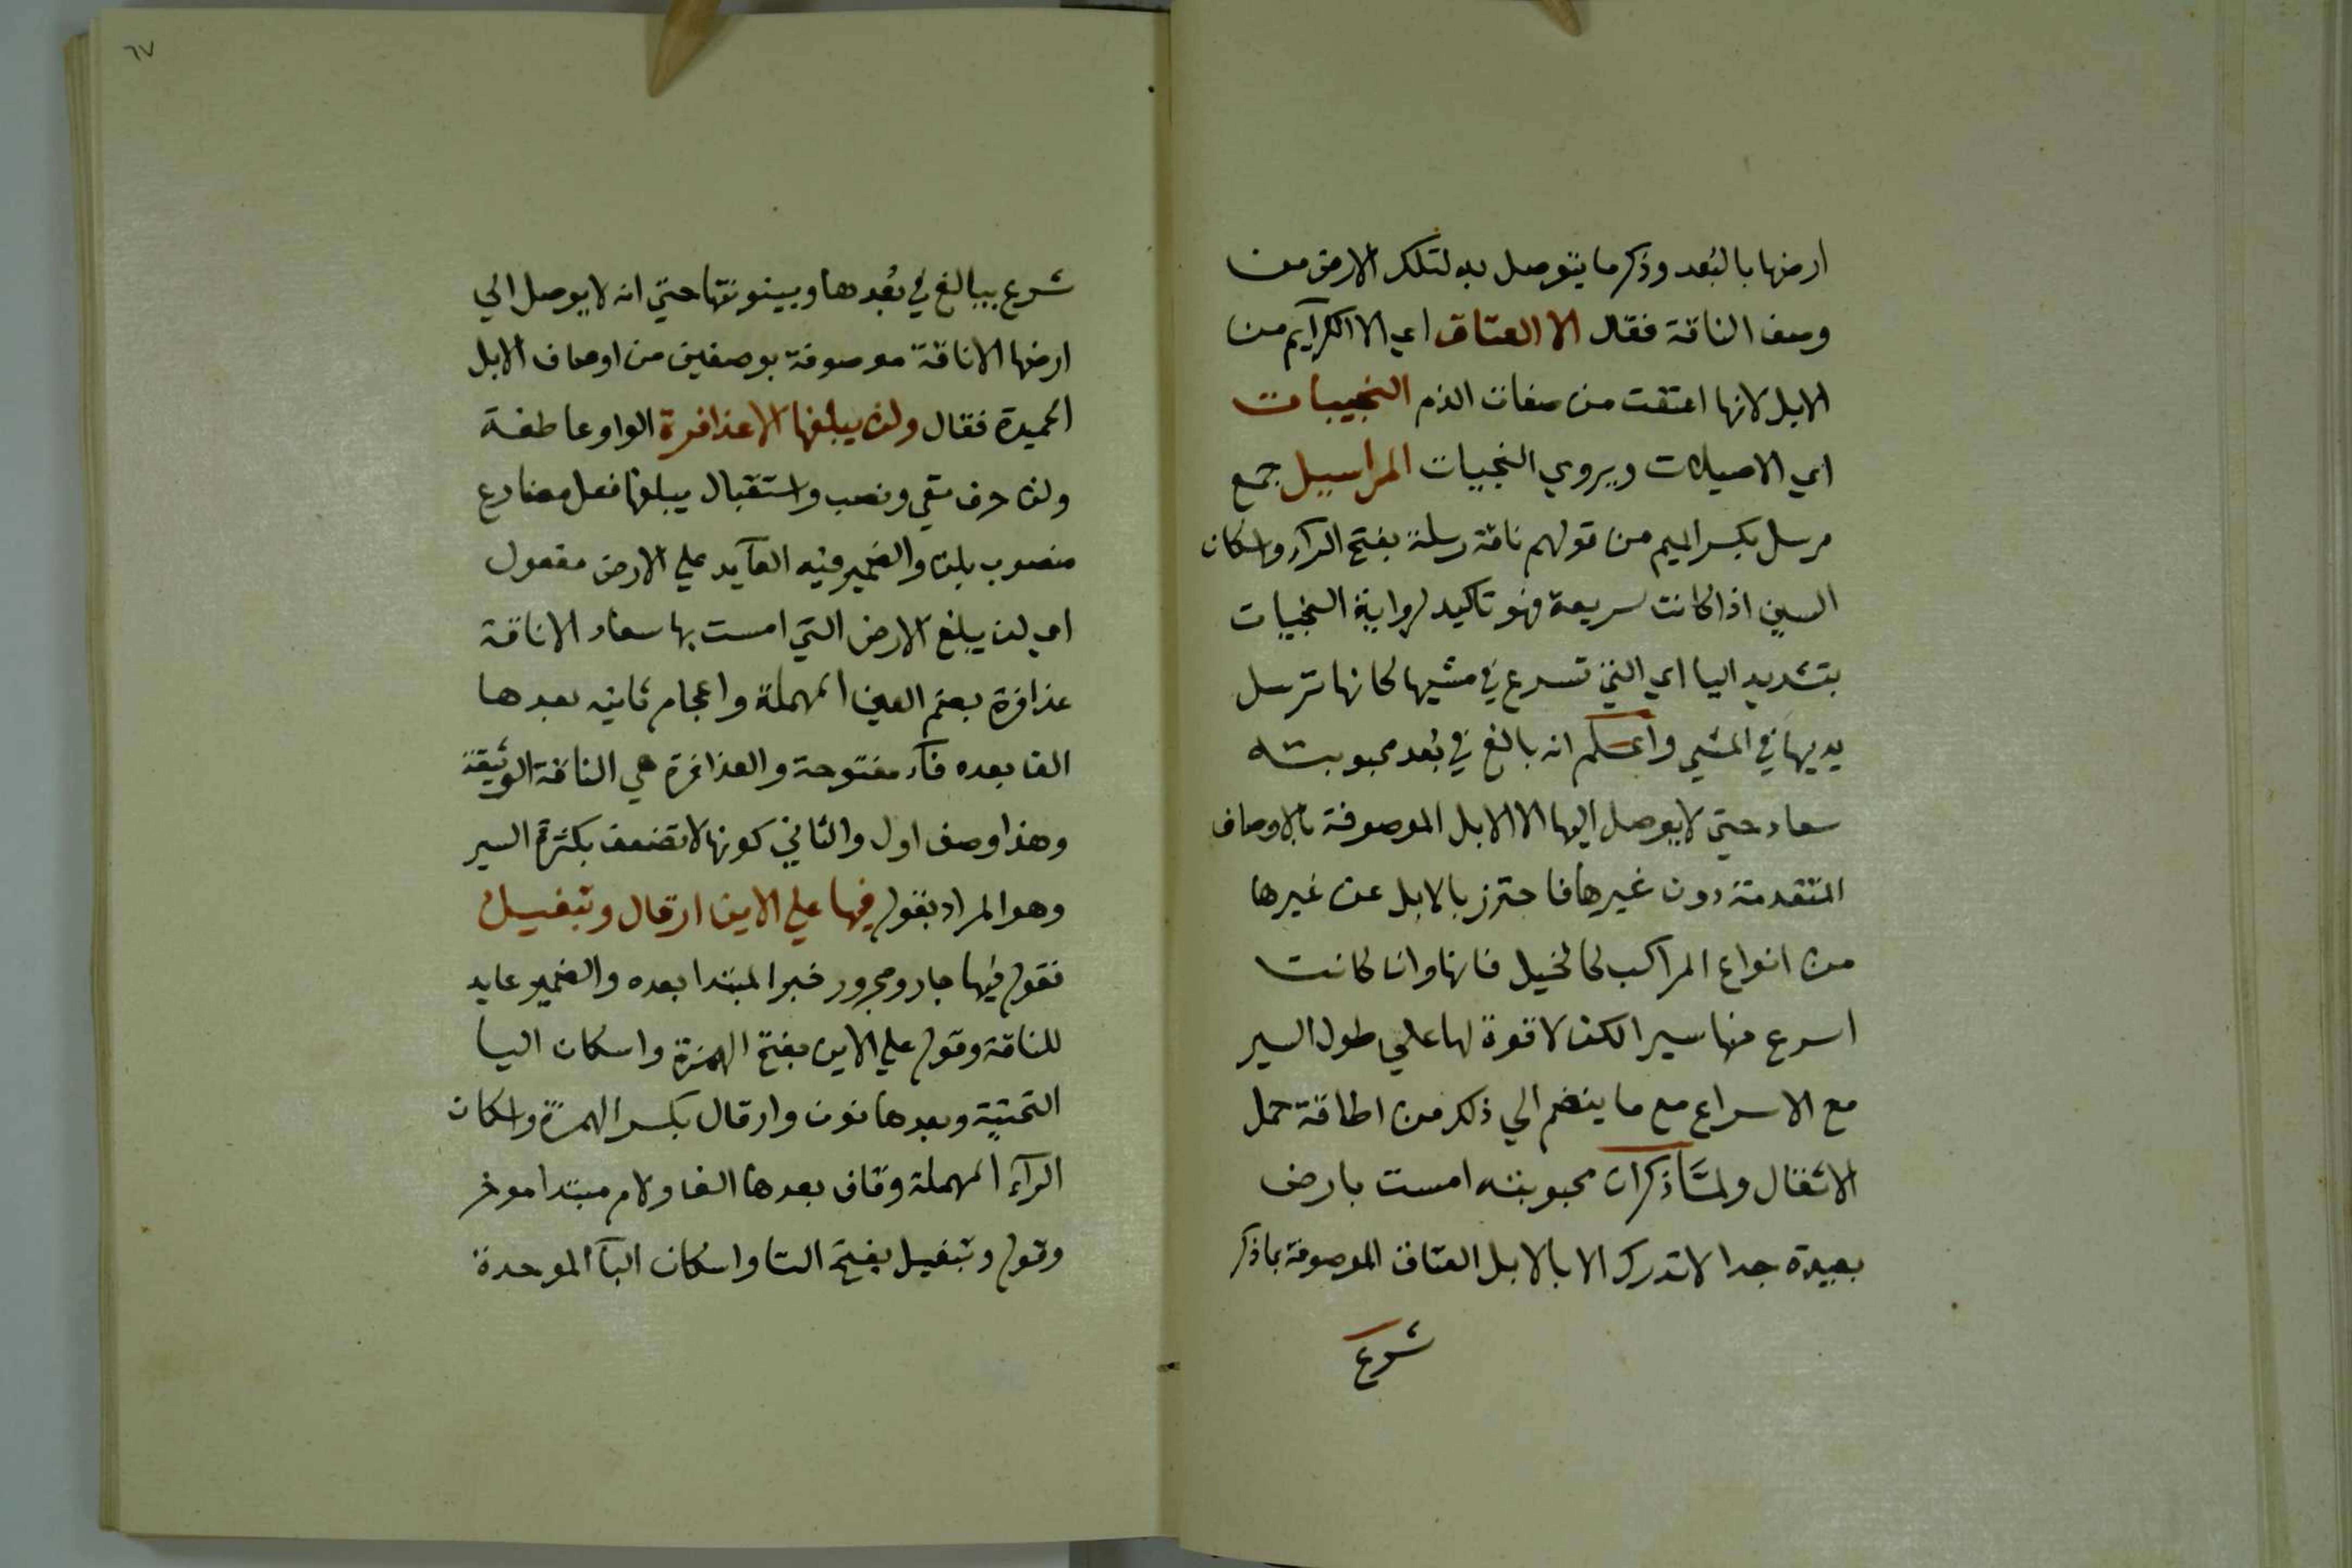 ارضها بالبُعد وذكر ما يتوصل به لتلك الارض من
وصف الناقة فقال الا العتاق اي الا الكرآيم من
الابل لانها اعتقت من صفات الذم النجيبات
اي الاصيلات ويروي النجيات المراسيل جمع
مرسل بكسر الميم من قولهم ناقة رسلة بفتح الرآء واسكان
السين اذا كانت سريعة فهو تاكيد لرواية النجيات
بتشديد اليا اي التي تسرع في مشيها كانها ترسل
يديها في المشي واعلم انه بالغ في بُعد محبوبته
سعاد حتي لا يوصل اليها الا الابل الموصوفة بالاوصاف
المتقدمة دون غيرها فاحترز بالابل عن غيرها
من انواع المراكب كالخيل فانها وان كانت
اسرع منها سيرا لكن لا قوة لها علي طول السير
مع الاسراع مع ما ينضم الي ذلك من اطاقة حمل
الاثقال ولمَّا ذكر ان محبوبته امست بارض
بعيدة جدا لا تدرك الا بالابل العتاق الموصوفة بما ذكر
شرع
٦٧
شرع يبالغ في بُعدها وبينونتها حتي انه لا يوصل الي
ارضها الا ناقة موصوفة بوصفين من اوصاف الابل
الحميدة فقال ولن يبلغها الا عذافرة الواو عاطفة
ولن حرف نفي ونصب واستقبال يبلغها فعل مضارع
منصوب بلن والضمير فيه العآيد علي الارض مفعول
اي لن يبلغ الارض التي امست بها سعاد الا ناقة
عذافرة بضم العين المهملة واعجام ثانيه بعدها
الف بعده فآء مفتوحة والعذافرة هي الناقة الوثيقة
وهذا وصف اول والثاني كونها لا تضعف بكثرة السير
وهو المراد بقوله فيها علي الاين ارقال وتبغيل
فقوله فيها جار ومجرور خبر المبتدا بعده والضمير عايد
للناقة وقوله علي الاين بفتح الهمزة واسكان اليا
التحتية وبعدها نون وارقال بكسر الهمزة واسكان
الرآء المهملة وقاف بعدها الف ولام مبتدا موخر
وقوله وتبغيل بفتح التا واسكان البآ الموحدة